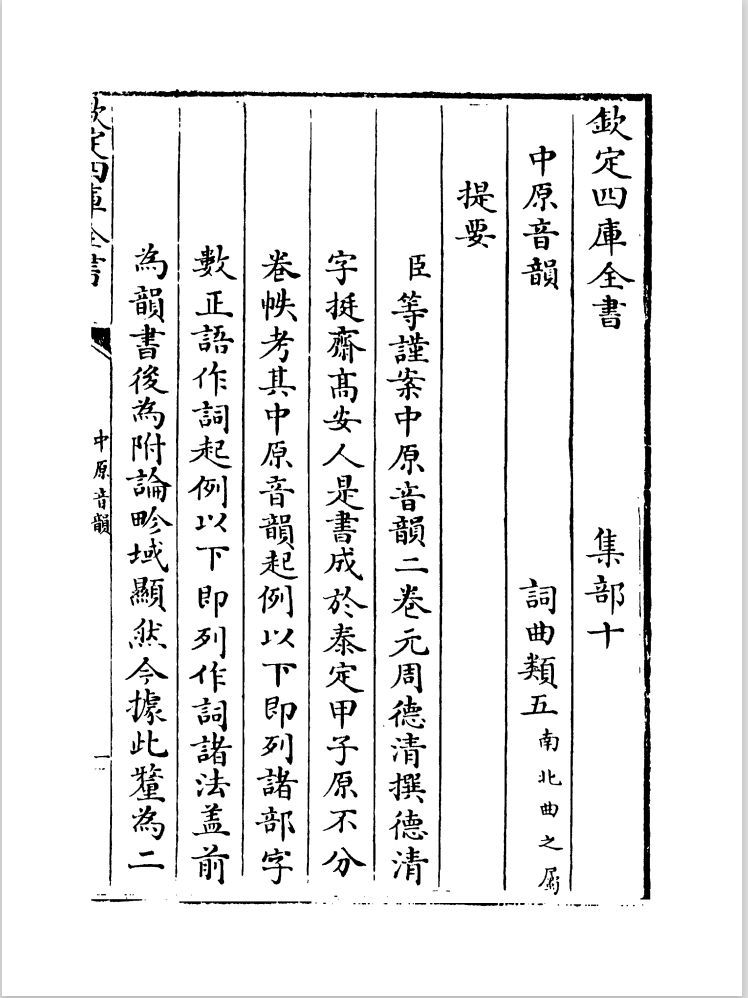 欽定四庫全書　集部十
中原音韻　詞曲類五南北曲之屬
提要
臣等謹案中原音韻二卷元周德清撰德清
字挺齋髙安人是書成於泰定甲子原不分
卷帙考其中原音韻起例以下即列諸部字
數正語作詞起例以下即列作詞諸法葢前
為韻書後為附論畛域顯然今據此釐為二
欽定四庫全書　中原音韻　一